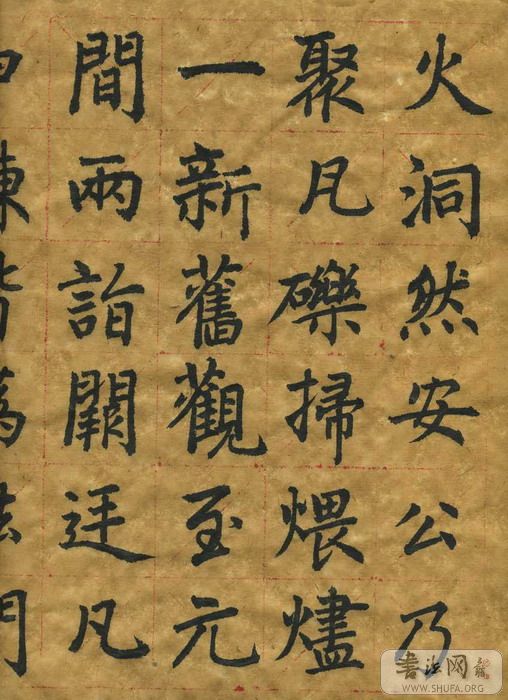 火洞然安公乃
聚瓦礫掃煨燼
一新舊觀至元
間兩詣闕廷凡
書法网
WWW.SHUFA.ORG